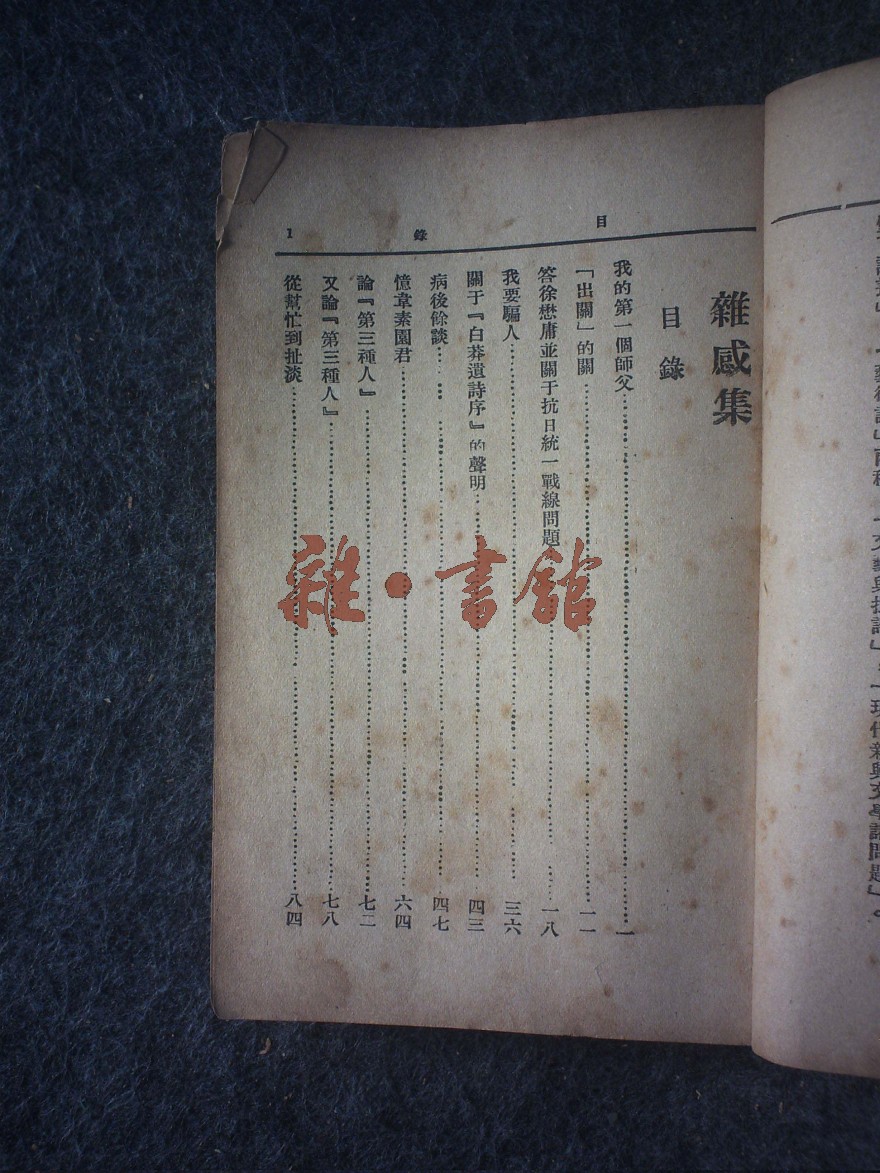 目錄 1
雜感集
目錄
我的第一個師父……一
「出關」的關……一一
答徐懋庸並關于抗日統一戰線問題……一八
我要騙人……三六
關于『白莽遺詩序』的聲明……四三
病後餘談……四七
憶韋素園君……六四
論『第三種人』……七二
又論『第三種人』……七八
從幫忙到扯淡……八四
雜·書館